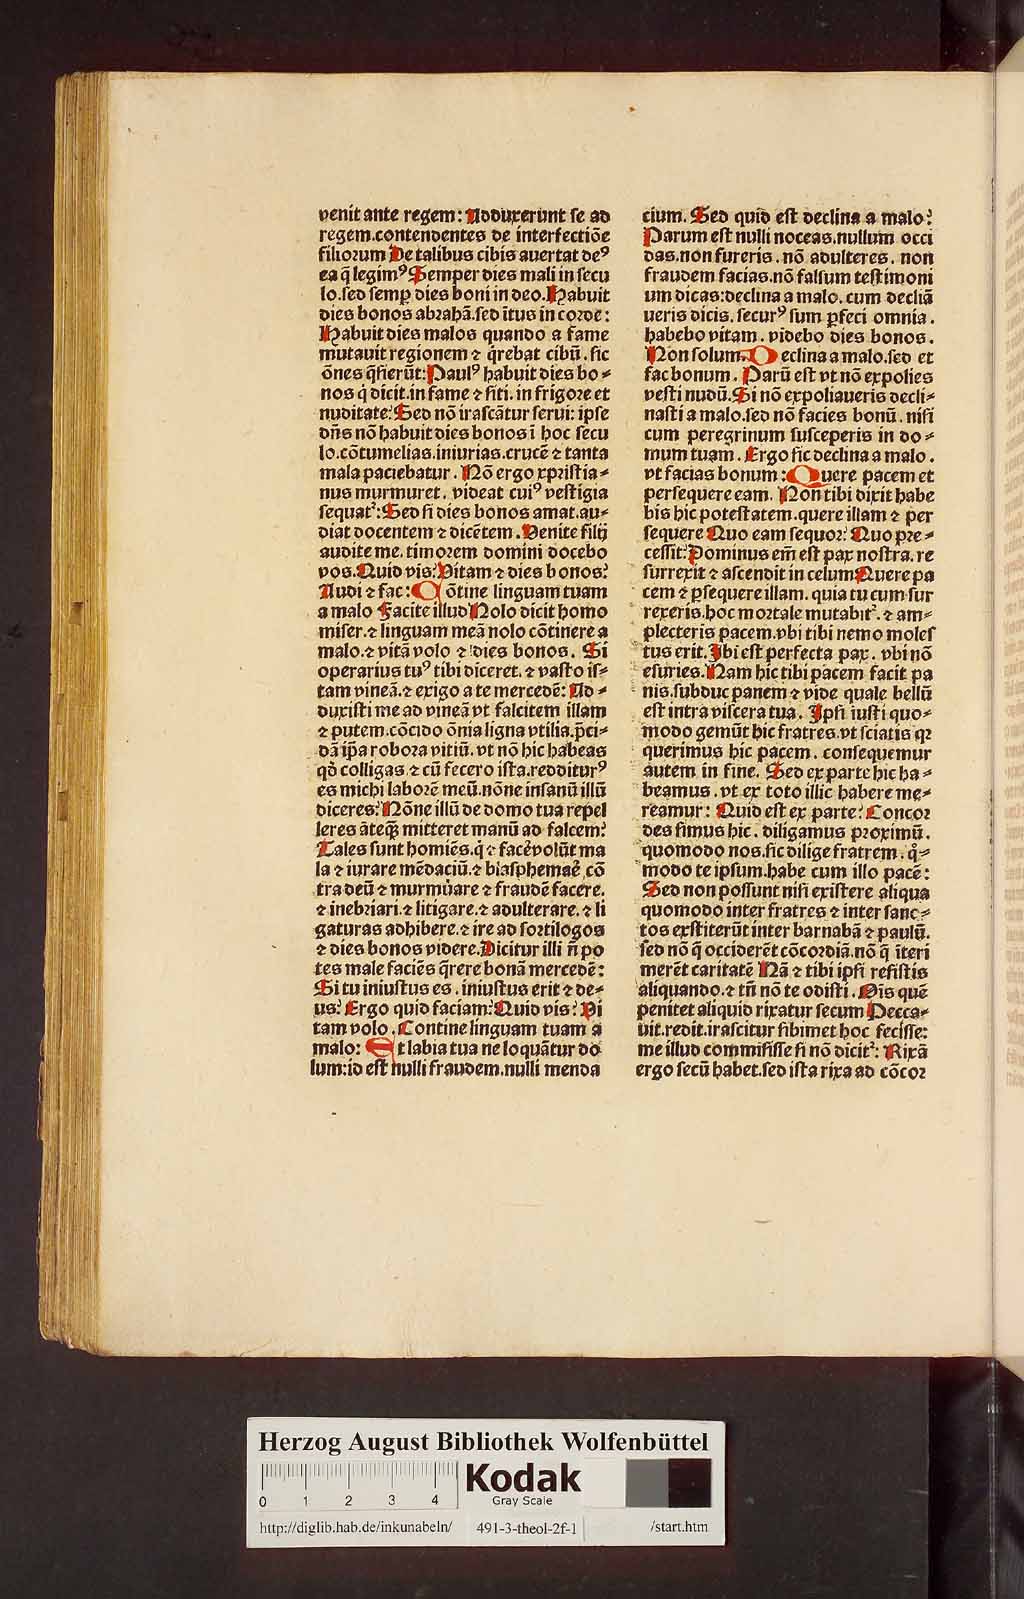 venit ante regem: Adduxerunt se ad
regem.contendentes de interfectiõe
filiorum De talibus cibis auertat deꝰ
ea q̃ legimꝰ Semper dies mali in secu
lo.sed semꝑ dies boni in deo.Habuit
dies bonos abrahã.sed ĩtus in corde:
Habuit dies malos quando a fame
mutauit regionem ⁊ q̃rebat cibũ. sic
õnes q̃sierũt: Paulꝰ habuit dies bo⸗
nos q̇ dicit.in fame ⁊ siti.in frigore et
nuditate: Sed nõ irascãtur serui: ipse
dñs nõ habuit dies bonos ĩ hoc secu
lo.cõtumelias.iniurias.crucẽ ⁊ tanta
mala paciebatur. Nõ ergo xpristia⸗
nus murmuret. videat cuiꝰ vestigia
sequat᷑: Sed si dies bonos amat.au⸗
diat docentem ⁊ dicẽtem. Uenite filij
audite me. timorem domini docebo
vos. Quid vis? Uitam ⁊ dies bonos?
Audi ⁊ fac: Cõtine linguam tuam
a malo Facite illud Nolo dicit homo
miser.⁊ linguam meã nolo cõtinere a
malo.⁊ vitã volo ⁊ dies bonos. Si
operarius tuꝰ tibi diceret.⁊ vasto is⸗
tam vineã.⁊ exigo a te mercedẽ: Ad⸗
duxisti me ad vineã vt falcitem illam
⁊ putem.cõcido õnia ligna vtilia.p̃ci⸗
dã ip̃a robora vitiũ.vt nõ hic habeas
qď colligas.⁊ cũ fecero ista.redditurꝰ
es michi laborẽ meũ.nõne insanũ illũ
diceres? Nõne illũ de domo tua repel
leres ãteꝙ̃ mitteret manũ ad falcem?
Tales sunt homiẽs.q̇ ⁊ facẽ volũt ma
la ⁊ iurare mẽdaciũ.⁊ blasphemaẽ cõ
tra deũ ⁊ murmurare ⁊ fraudẽ facere.
⁊ inebriari.⁊ litigare.⁊ adulterare.⁊ li
gaturas adhibere.⁊ ire ad sortilogos
⁊ dies bonos videre. Dicitur illi ñ po
tes male faciẽs q̃rere bonã mercedẽ:
Si tu iniustus es. iniustus erit ⁊ de⸗
us? Ergo quid faciam? Quid vis? Ui
tam volo. Contine linguam tuam a
malo: Et labia tua ne loquãtur do
lum:id est nulli fraudem.nulli menda
cium. Sed quid est declina a malo?
Parum est nulli noceas.nullum occi
das.non fureris. nõ adulteres. non
fraudem facias.nõ falsum testimoni
um dicas:declina a malo. cum decliã
ueris dicis. securꝰ sum ꝑfeci omnia.
habebo vitam. videbo dies bonos.
Non solum. Declina a malo.sed et
fac bonum. Parũ est vt nõ expolies
vesti nudũ. Si nõ expoliaueris decli⸗
nasti a malo.sed nõ facies bonũ. nisi
cum peregrinum susceperis in do⸗
mum tuam. Ergo sic declina a malo.
vt facias bonum: Quere pacem et
persequere eam. Non tibi dixit habe
bis hic potestatem.quere illam ⁊ per
sequere Quo eam sequor? Quo pre⸗
cessit? Dominus em̃ est pax nostra. re
surrexit ⁊ ascendit in celum Quere pa
cem ⁊ ꝑsequere illam. quia tu cum sur
rexeris.hoc mortale mutabit᷑. ⁊ am⸗
plecteris pacem.vbi tibi nemo moles
tus erit. Ibi est perfecta pax. vbi nõ
esuries. Nam hic tibi pacem facit pa
nis.subduc panem ⁊ vide quale bellũ
est intra viscera tua. Ipsi iusti quo⸗
modo gemũt hic fratres.vt sciatis qꝛ
querimus hic pacem. consequemur
autem in fine. Sed ex parte hic ha⸗
beamus.vt ex toto illic habere me⸗
reamur: Quid est ex parte? Concor
des simus hic. diligamus proximũ.
quomodo nos.sic dilige fratrem. q̊⸗
modo te ipsum.habe cum illo pacẽ:
Sed non possunt nisi existere aliqua
quomodo inter fratres ⁊ inter sanc⸗
tos exstiterũt inter barnabã ⁊ paulũ.
sed nõ q̃ occiderẽt cõcordiã.nõ q̃ ĩteri
merẽt caritatẽ Nã ⁊ tibi ipsi resistis
aliquando.⁊ tñ nõ te odisti. Oĩs quẽ
penitet aliquid rixatur secum Pecca⸗
uit.redit.irascitur sibimet hoc fecisse:
me illud commisisse si nõ dicit᷑: Rixã
ergo secũ habet.sed ista rixa ad cõcor
Herzog August Bibliothek Wolfenbüttel
0 1 2 3 4
Kodak
Gray Scale
http://diglib.hab.de/inkunabeln/ 491-3-theol-2f-1 /start.htm